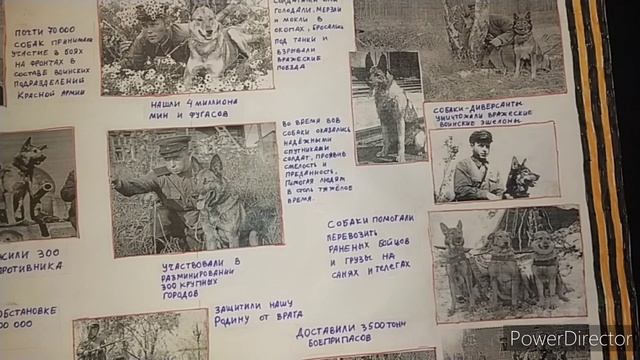 ПОЧТИ 70000
СОБАК ПРИНИМАЛИ
УЧАСТИЕ В БОЯХ
НА ФРОНТАХ В
СОСТАВЕ ВОИНСКИХ
ПОДРАЗДЕЛЕНИЙ
КРАСНОЙ АРМИИ
ГОЛОДАЛИ, МЁРЗЛИ
И МОКЛИ В
ОКОПАХ, БРОСАЛИСЬ
ПОД ТАНКИ И
ВЗРЫВАЛИ
ВРАЖЕСКИЕ
ПОЕЗДА
НАШЛИ 4 МИЛЛИОНА
МИН И ФУГАСОВ
ВО ВРЕМЯ ВОВ
СОБАКИ ОКАЗАЛИСЬ
НАДЁЖНЫМИ
СПУТНИКАМИ
СОЛДАТ, ПРОЯВИВ
СМЕЛОСТЬ И
ПРЕДАННОСТЬ,
ПОМОГАЯ ЛЮДЯМ
В СТОЛЬ ТЯЖЁЛОЕ
ВРЕМЯ.
СОБАКИ-ДИВЕРСАНТЫ
УНИЧТОЖАЛИ ВРАЖЕСКИЕ
ВОИНСКИЕ ЭШЕЛОНЫ
СОБАКИ ПОМОГАЛИ
ПЕРЕВОЗИТЬ
РАНЕНЫХ БОЙЦОВ
И ГРУЗЫ НА
САНЯХ И ТЕЛЕГАХ
300
УЧАСТВОВАЛИ В
РАЗМИНИРОВАНИИ
300 КРУПНЫХ
ГОРОДОВ
ЗАЩИТИЛИ НАШУ
РОДИНУ ОТ ВРАГА
ДОСТАВИЛИ 3500 ТОНН
БОЕПРИПАСОВ
PowerDirector